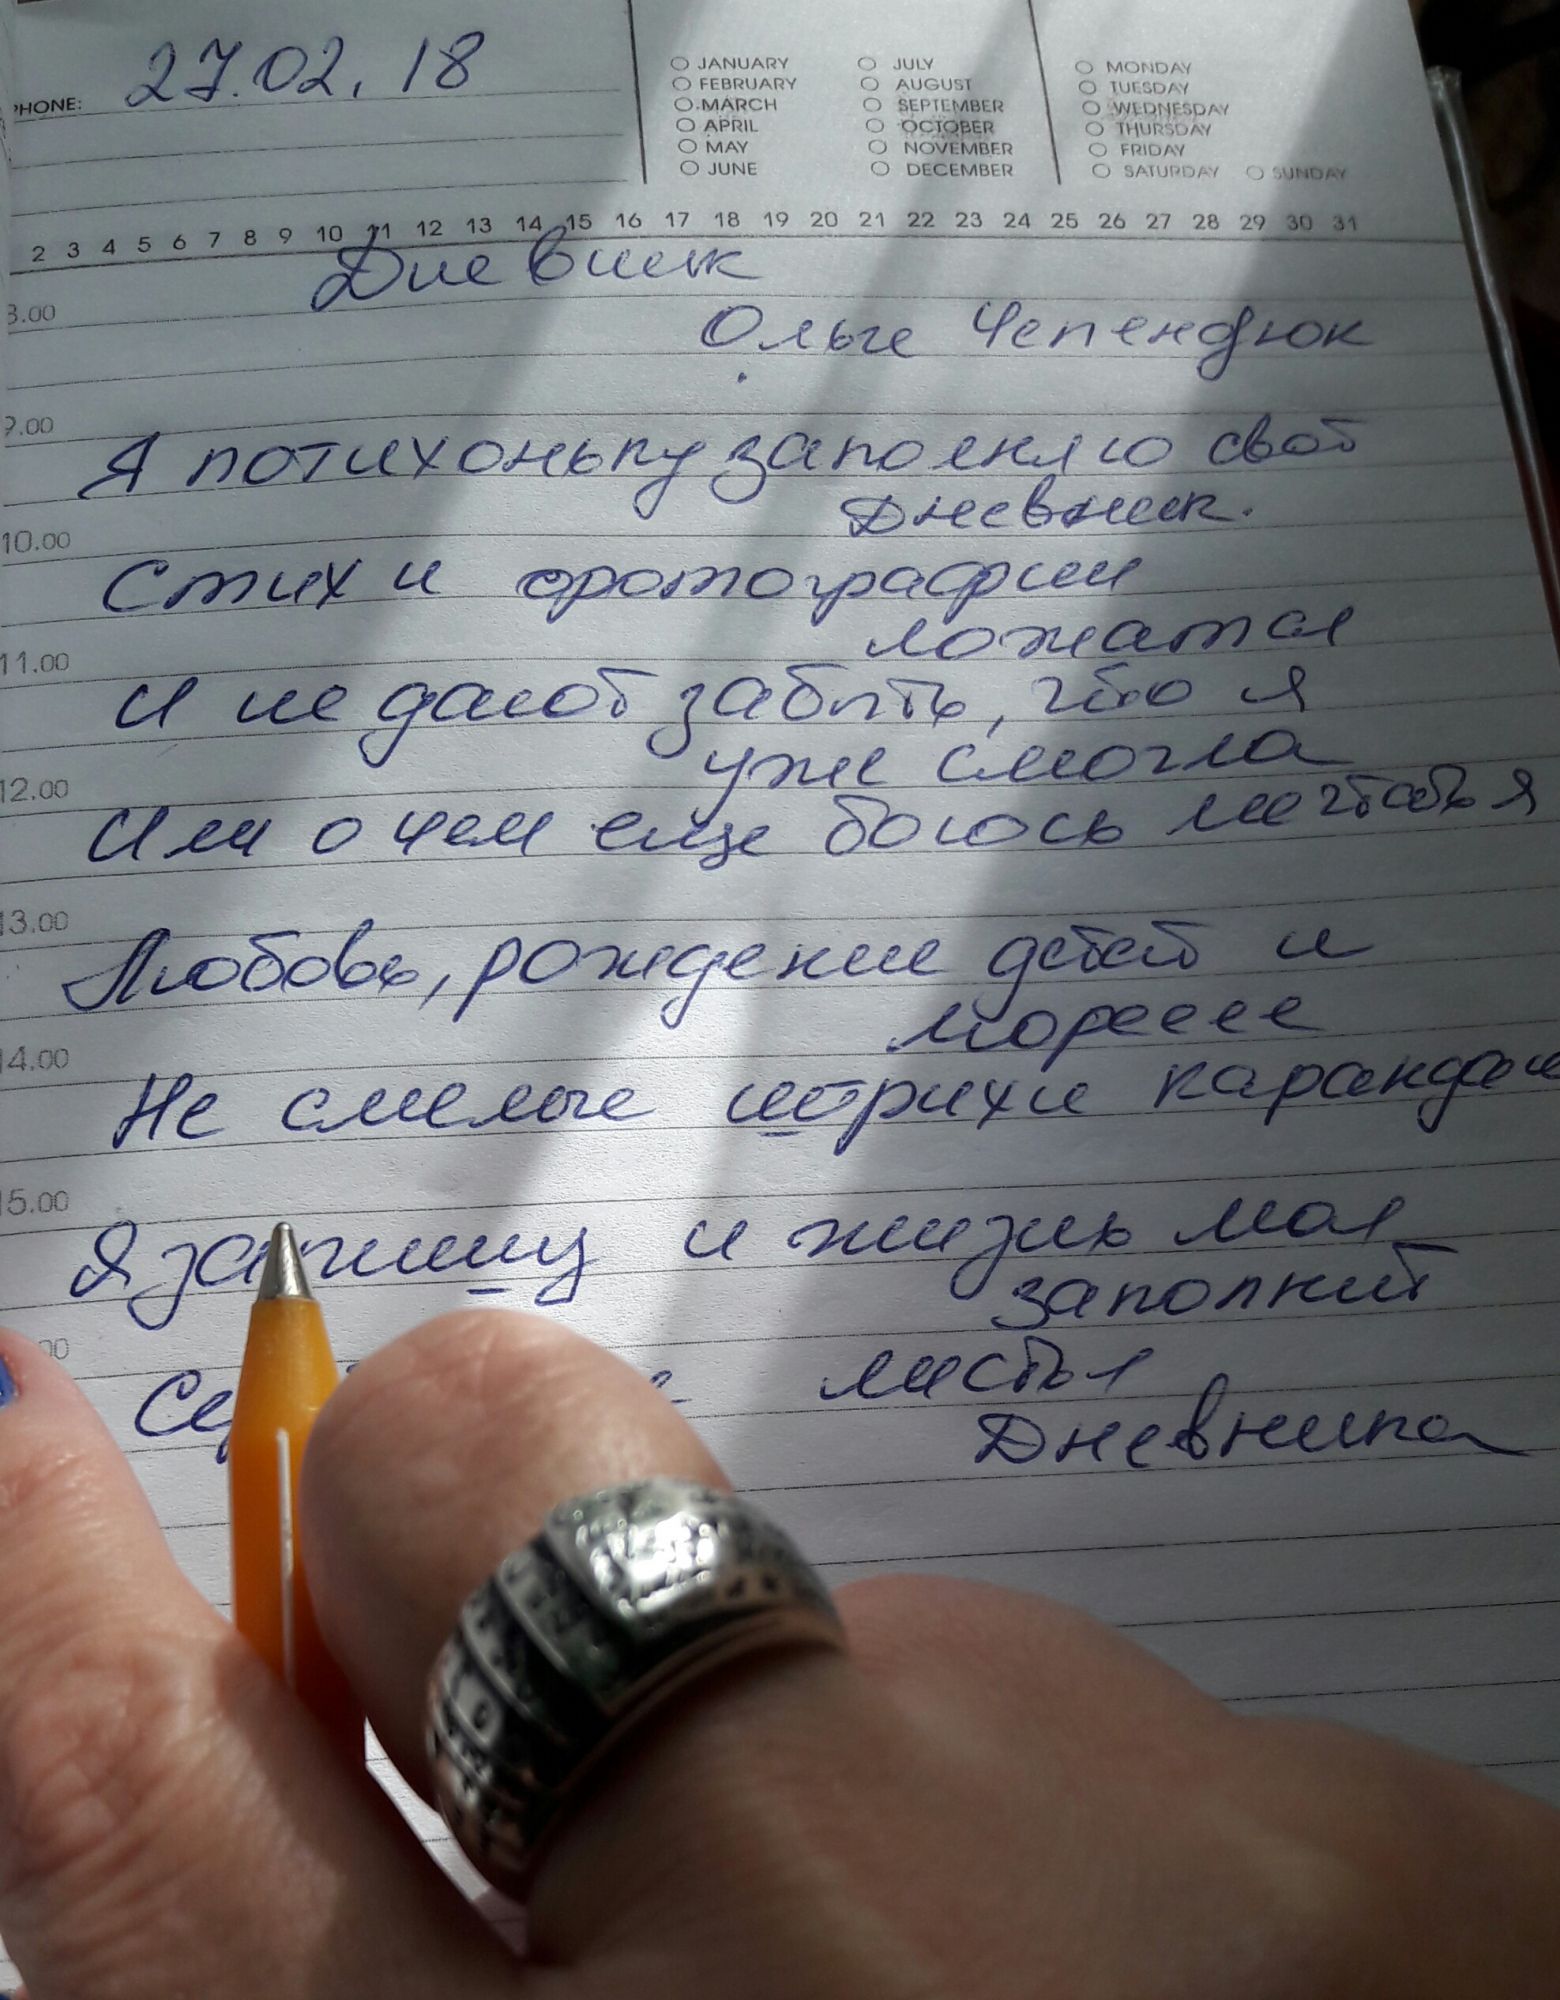 27.02.18
PHONE:
JANUARY JULY MONDAY
FEBRUARY AUGUST TUESDAY
MARCH SEPTEMBER WEDNESDAY
APRIL OCTOBER THURSDAY
MAY NOVEMBER FRIDAY
JUNE DECEMBER SATURDAY SUNDAY
2 3 4 5 6 7 8 9 10 11 12 13 14 15 16 17 18 19 20 21 22 23 24 25 26 27 28 29 30 31
Дневник
8.00
Ольге Чепендюк
9.00
Я потихоньку заполняю свой
дневник.
10.00
Стихи фотографии
ложатся
11.00
И не дают забыть, что я
уже смогла
12.00
Или о чем еще боюсь мечтать я
13.00
Любовь, рождение детей и
мореее
14.00
Не смелые штрихи карандаш
15.00
Я запишу и жизнь моя
заполнит
00
листья
Дневника